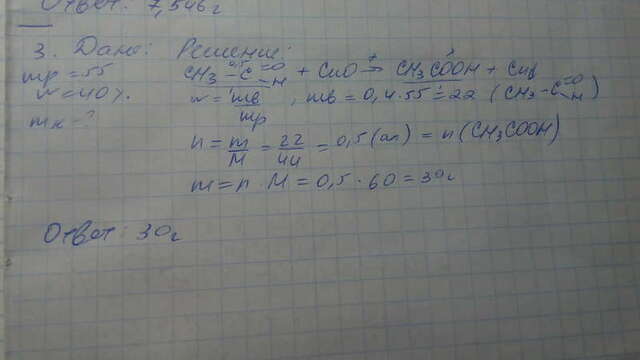 Ответ: 7,546г
3. Дано: Решение:
mр = 55
w = 40%
mк - ?
CH₃ - C =O - H + CuO → CH₃COOH + Cu↓
w = mв / mр , mв = 0,4 · 55 = 22 (CH₃ - C =O - H)
n = m / M = 22 / 44 = 0,5 (моль) = n (CH₃COOH)
m = n · M = 0,5 · 60 = 30г
Ответ: 30г